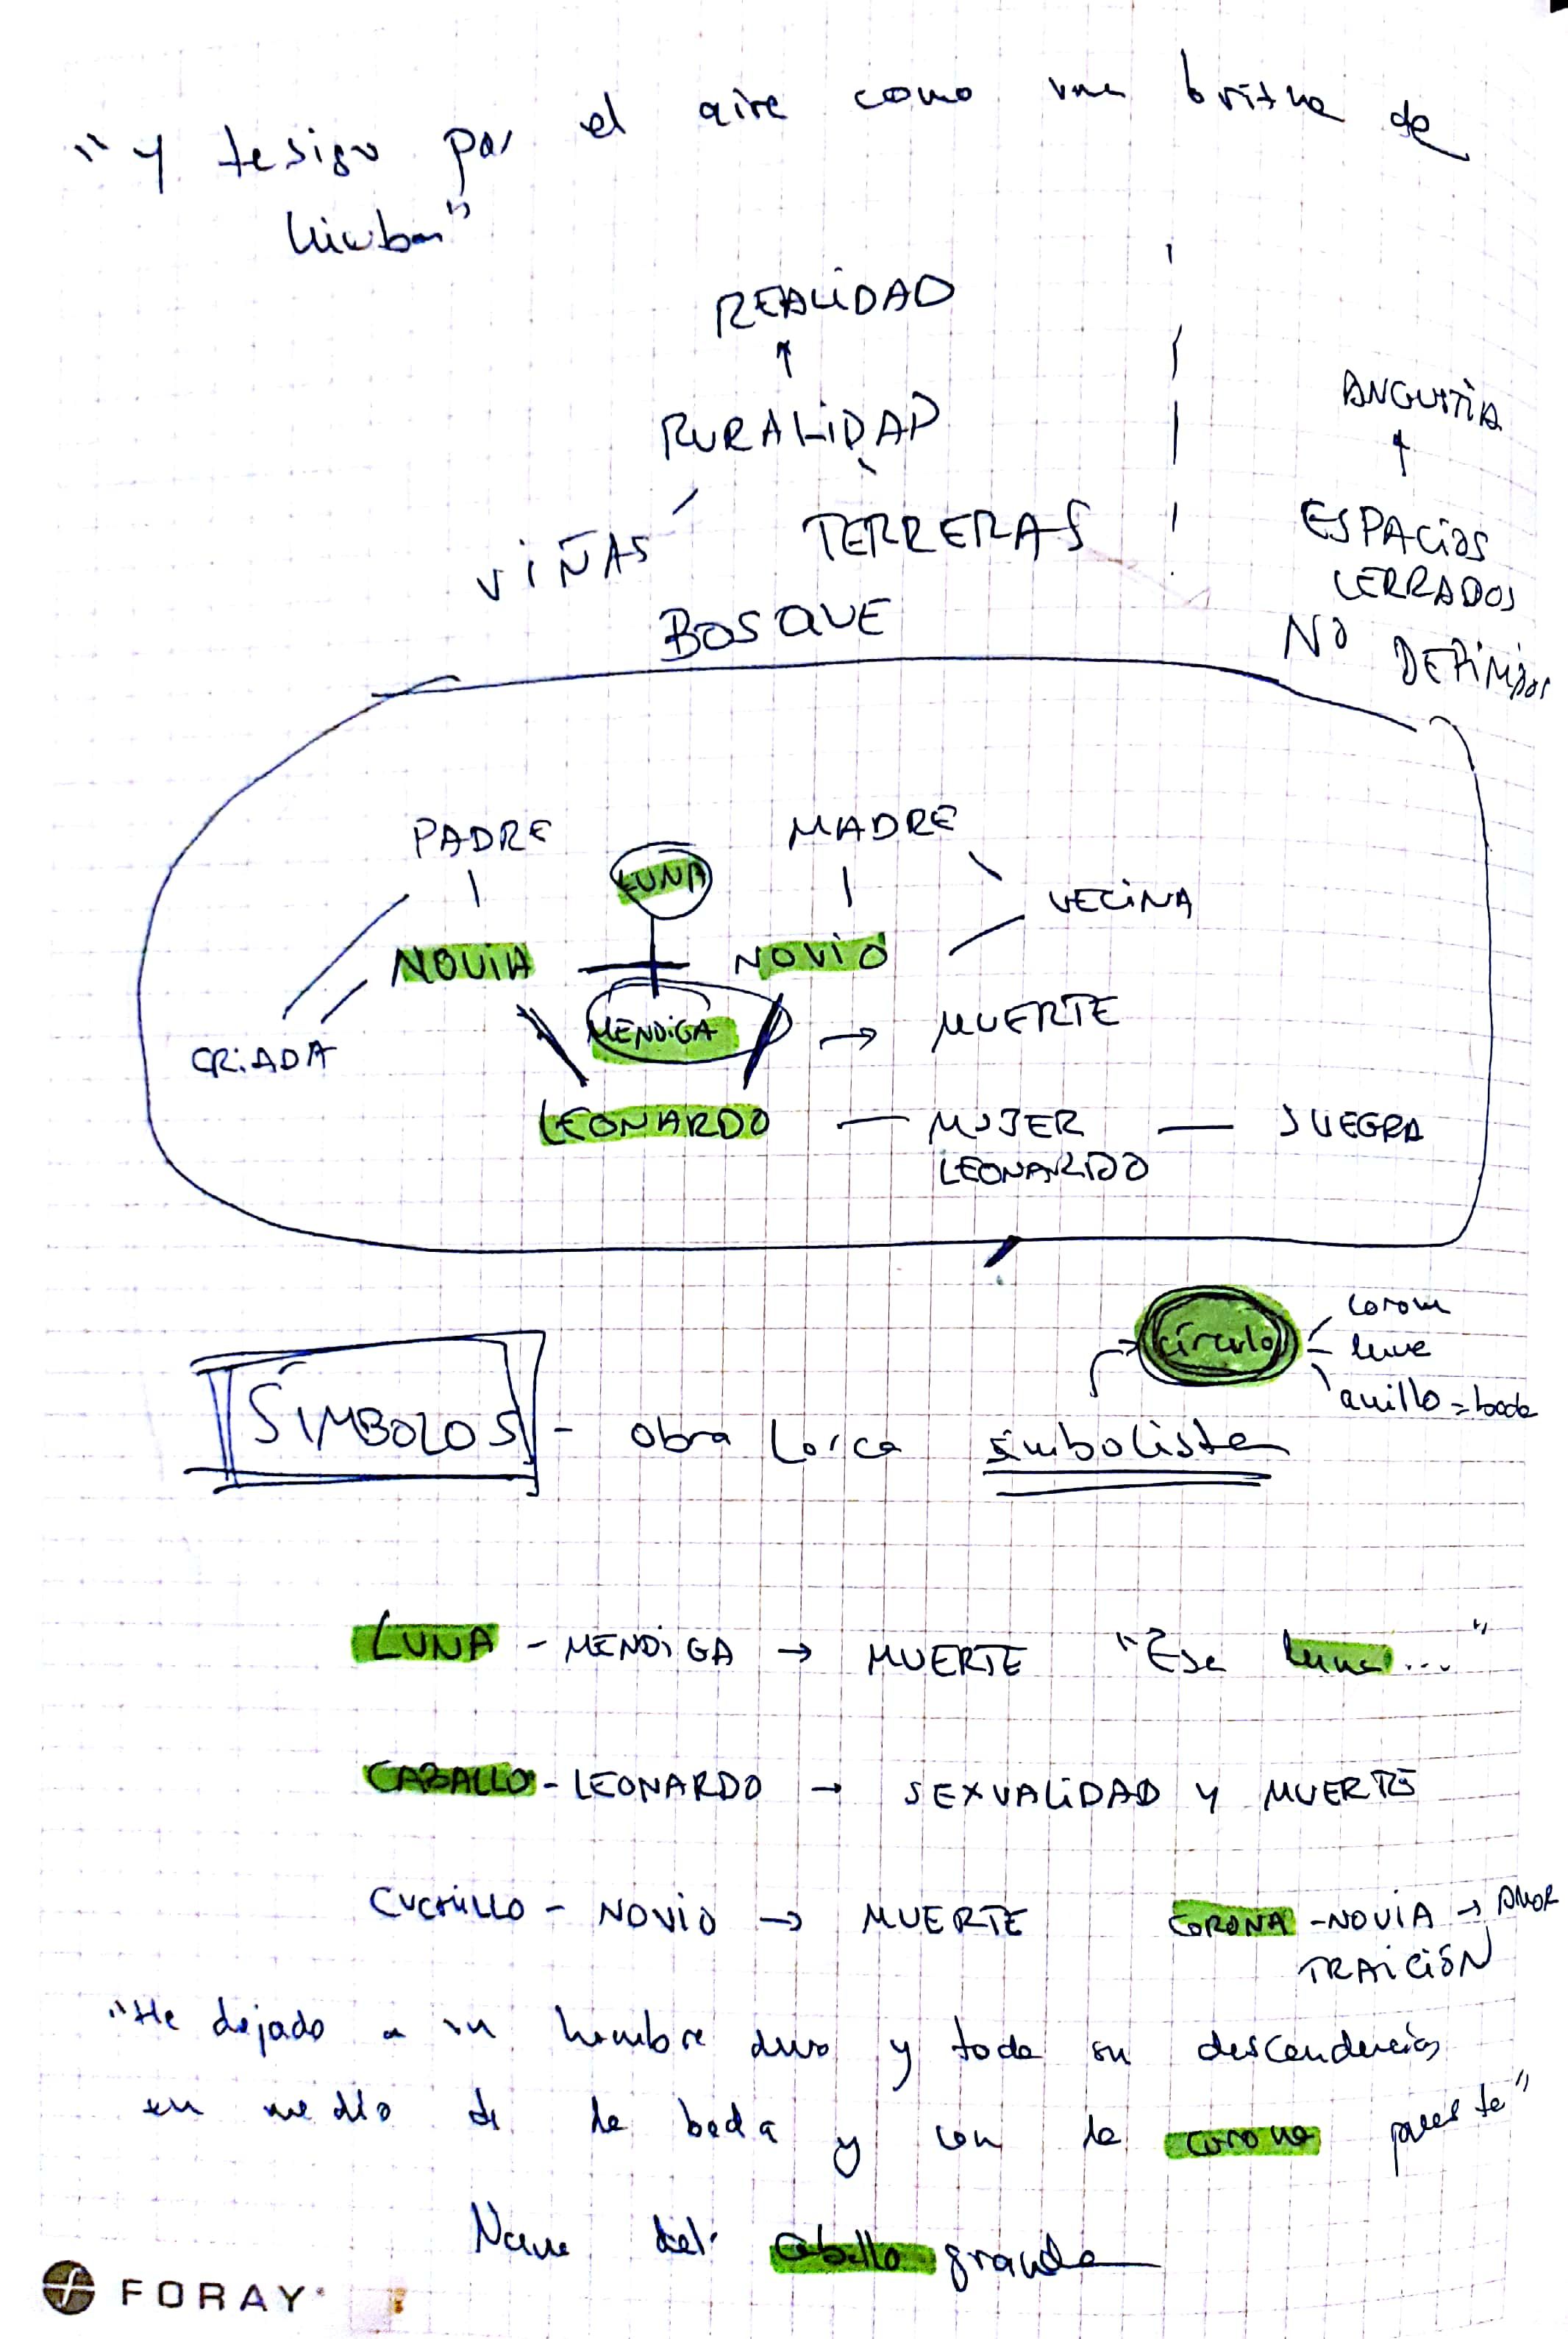 "Y te sigo por el aire como una brizna de
hierba"
REALIDAD
RURALIDAD
VIÑAS
TERRERAS
BOSQUE
ANGUSTIA
ESPACIOS
CERRADOS
NO DEFINIDOS
PADRE
LUNA
MADRE
VECINA
NOVIA
NOVIO
CRIADA
MENDIGA → MUERTE
LEONARDO — MUJER — SUEGRA
LEONARDO
círculo
corona
luna
anillo = boda
SÍMBOLOS - obra Lorca simbolista
LUNA - MENDIGA → MUERTE "Esa luna..."
CABALLO - LEONARDO → SEXUALIDAD Y MUERTE
CUCHILLO - NOVIO → MUERTE
CORONA - NOVIA → AMOR
TRAICIÓN
"He dejado a un hombre duro y toda su descendencia
en medio de la boda y con la corona puesta"
Nana del caballo grande
FORAY